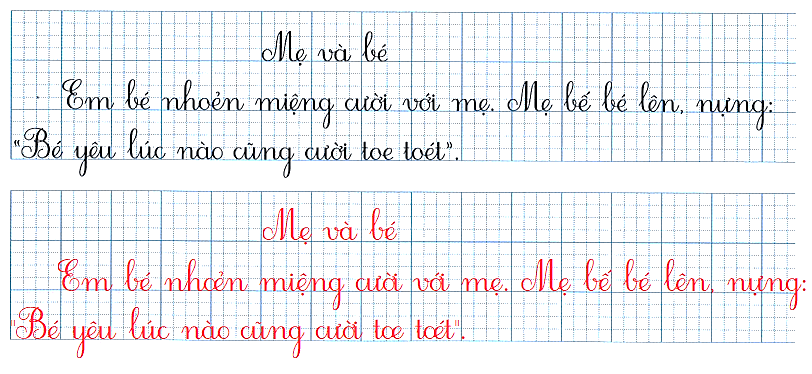 Mẹ và bé
Em bé nhoẻn miệng cười với mẹ. Mẹ bế bé lên, nựng:
"Bé yêu lúc nào cũng cười toe toét".
Mẹ và bé
Em bé nhoẻn miệng cười với mẹ. Mẹ bế bé lên, nựng:
"Bé yêu lúc nào cũng cười toe toét".